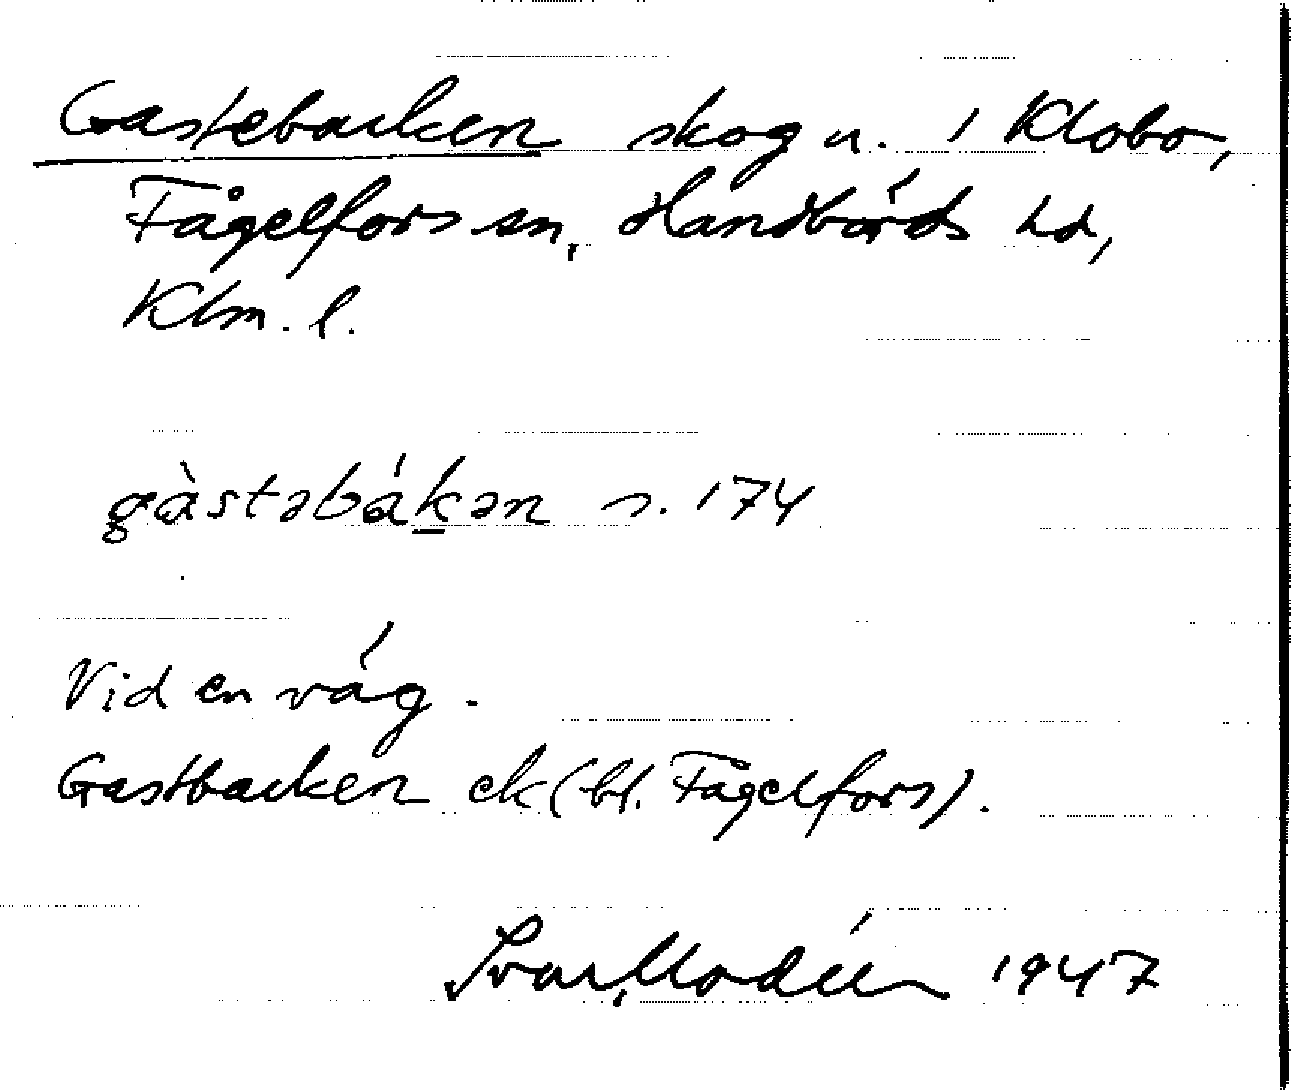 Gastebacken skog n. i Klobo,
Fågelfors sn, Handbörds hd,
Klm. l.
gàstəbákən s. 174
Vid en väg.
Gastbacken ek (bl. Fågelfors).
Ivar Modéer 1947